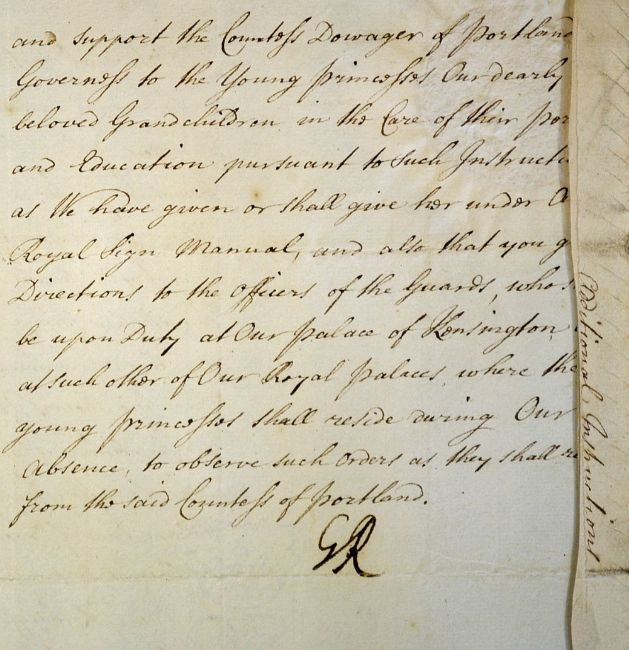 and support the Countess Dowager of Portland
Governess to the Young Princesses Our dearly
beloved Grandchildren in the Care of their Per
and Education pursuant to such Instructi
as We have given or shall give her under O
Royal Sign Manual, and also that you g
Directions to the Officers of the Guards, who s
be upon Duty at Our Palace of Kensington,
at such other of Our Royal Palaces, where the
young Princesses shall reside during Our
Absence, to observe such Orders as they shall re
from the said Countess of Portland.
GR
ditional Instructions